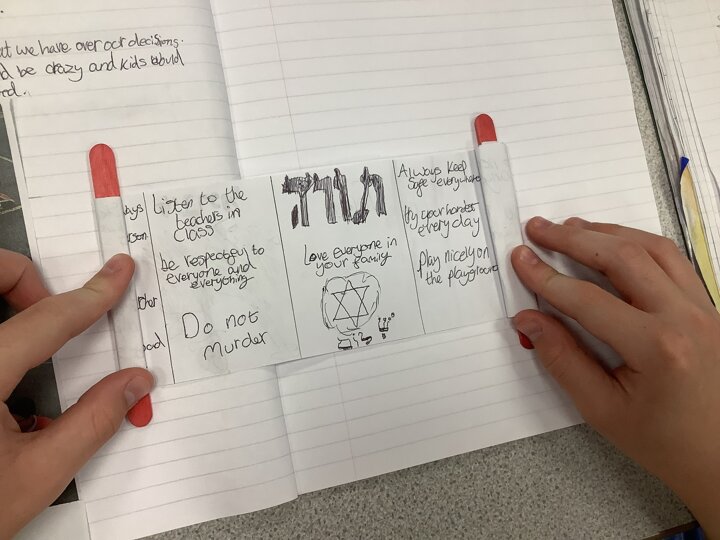 at we have over our decisions.
d be crazy and kids would
Listen to the
teachers in
class
be respectful to
everyone and
everything
Do not
murder
תורה
Love everyone in
your family
Always keep
safe everywhere
try your hardest
every day
Play nicely on
the playground